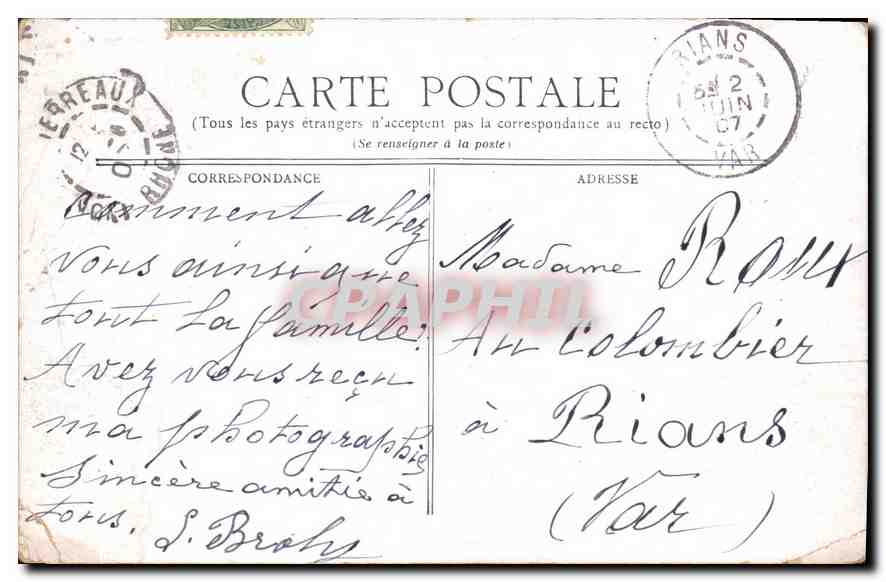 CARTE POSTALE
(Tous les pays étrangers n'acceptent pas la correspondance au recto)
(Se renseigner à la poste)
RIANS
2
JUIN
07
VAR
RHONE
12
CORRESPONDANCE
Comment allez
vous ainsi que
tout la famille?
Avez vous reçu
ma photographie
Sincère amitié à
tous.
ADRESSE
Madame Roux
Au Colombier
à Rians
(Var)
CPAPHIL